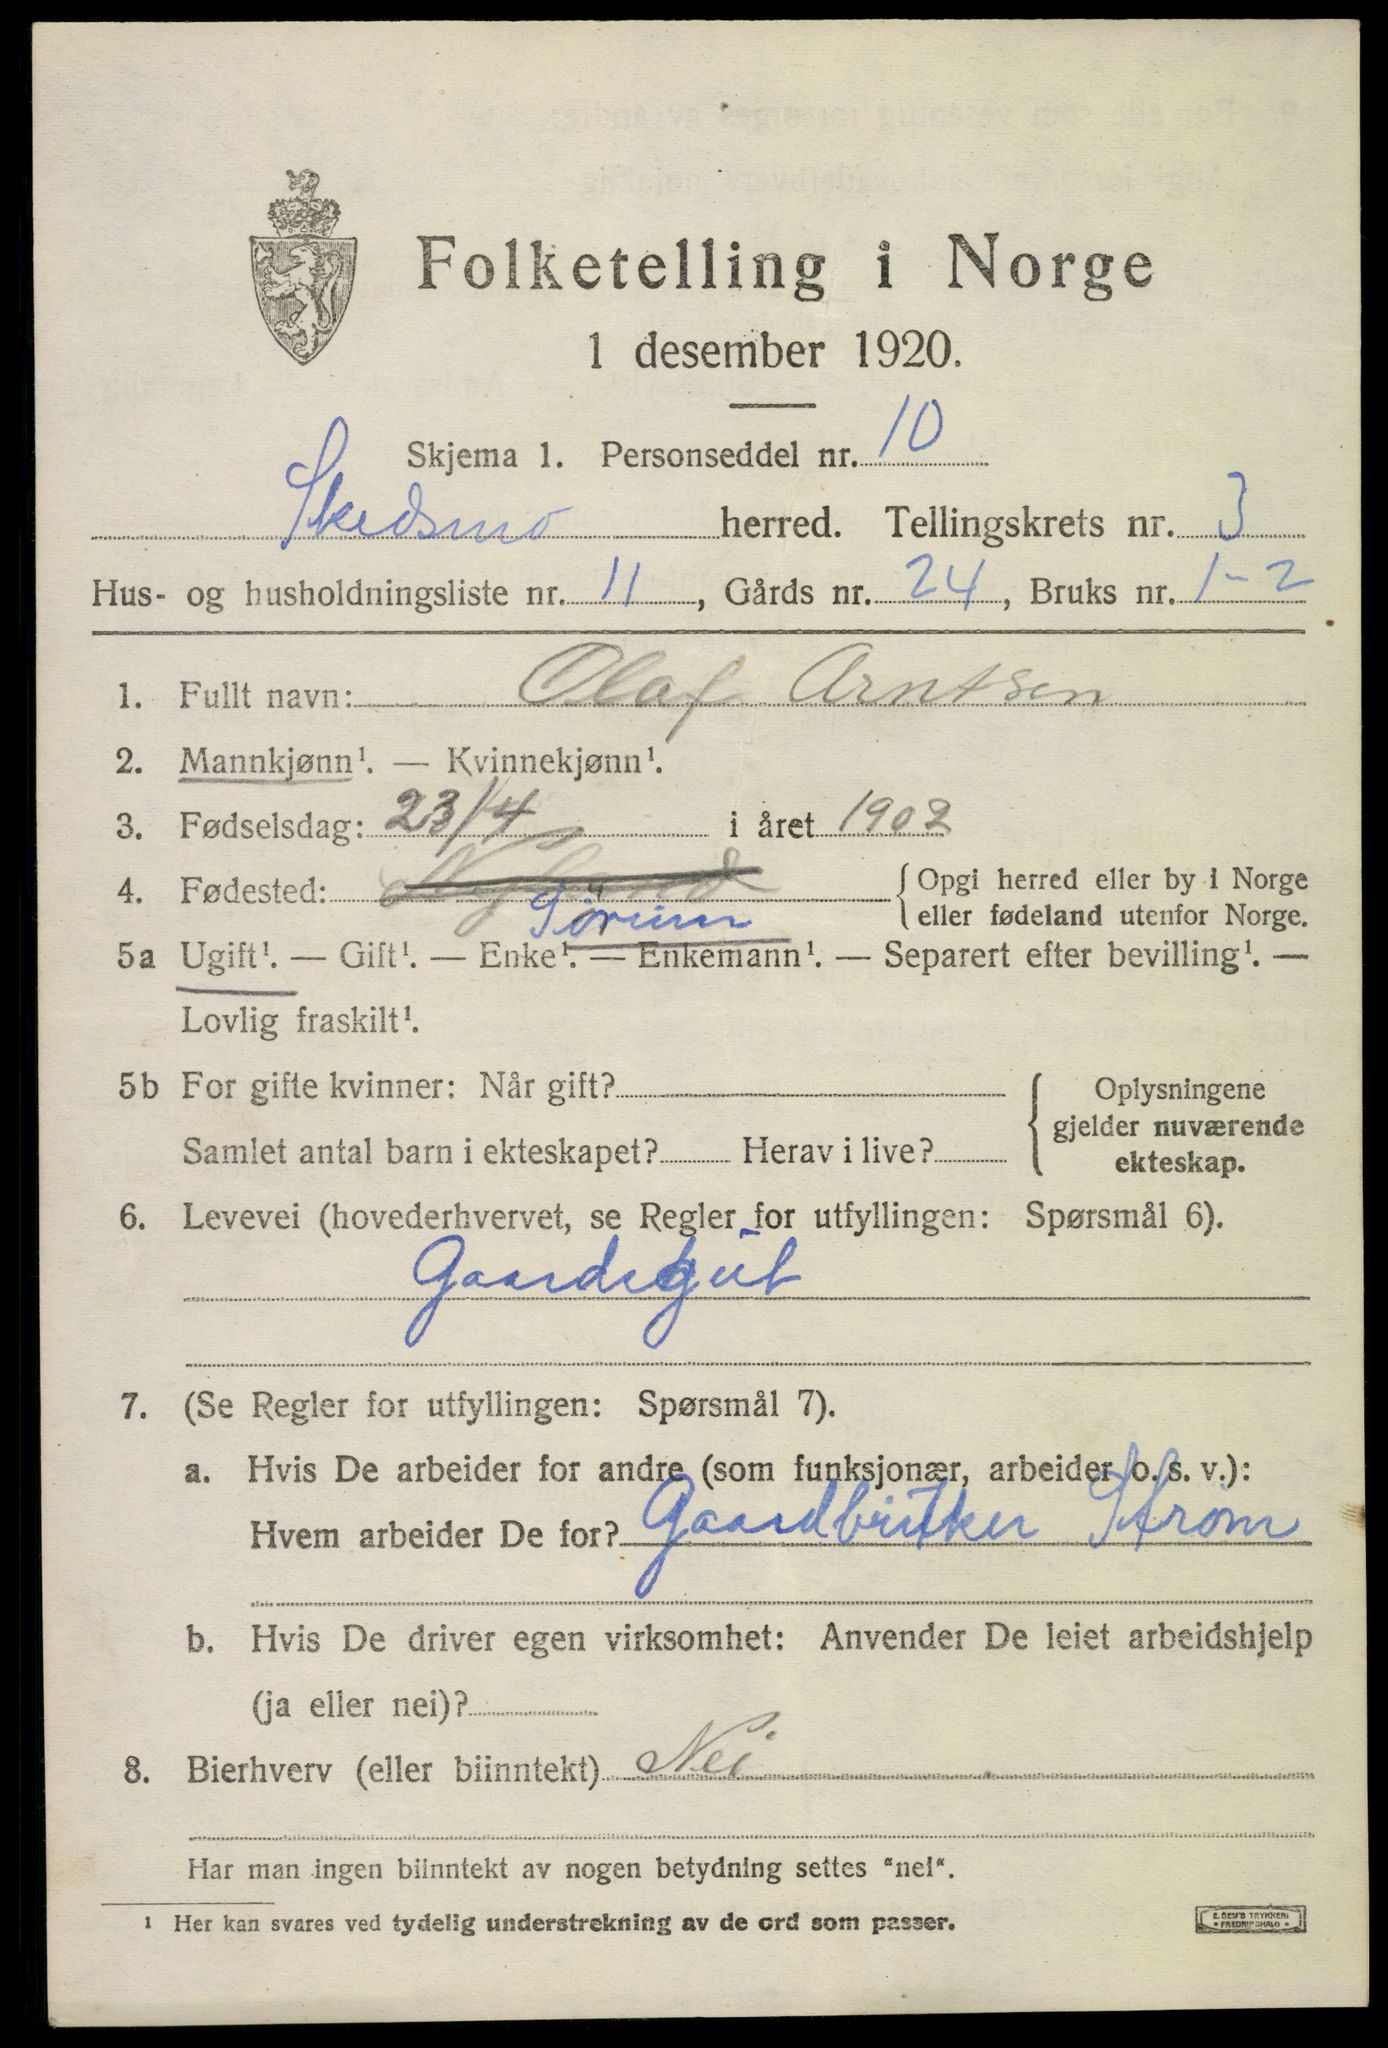 Folketelling i Norge
1 desember 1920.
Skjema 1. Personseddel nr. 10
Skedsmo herred. Tellingskrets nr. 3
Hus- og husholdningsliste nr. 11, Gårds nr. 24, Bruks nr. 1-2
1. Fullt navn: Olaf Arntsen
2. Mannkjønn¹. — Kvinnekjønn¹.
3. Fødselsdag: 23/4 i året 1902
4. Fødested: { Opgi herred eller by i Norge
eller fødeland utenfor Norge.
Sørum
5a Ugift¹. — Gift¹. — Enke¹. — Enkemann¹. — Separert efter bevilling¹. —
Lovlig fraskilt¹.
5b For gifte kvinner: Når gift? { Oplysningene
gjelder nuværende
Samlet antal barn i ekteskapet? Herav i live?
ekteskap.
6. Levevei (hovederhvervet, se Regler for utfyllingen: Spørsmål 6).
Gaardsgut
7. (Se Regler for utfyllingen: Spørsmål 7).
a. Hvis De arbeider for andre (som funksjonær, arbeider o. s. v.):
Hvem arbeider De for? Gaardbruker Strøm
b. Hvis De driver egen virksomhet: Anvender De leiet arbeidshjelp
(ja eller nei)?
8. Bierhverv (eller biinntekt) Nei
Har man ingen biinntekt av nogen betydning settes "nei".
¹ Her kan svares ved tydelig understrekning av de ord som passer.
E. SEM'S TRYKKERI
• FREDRIKSHALD •